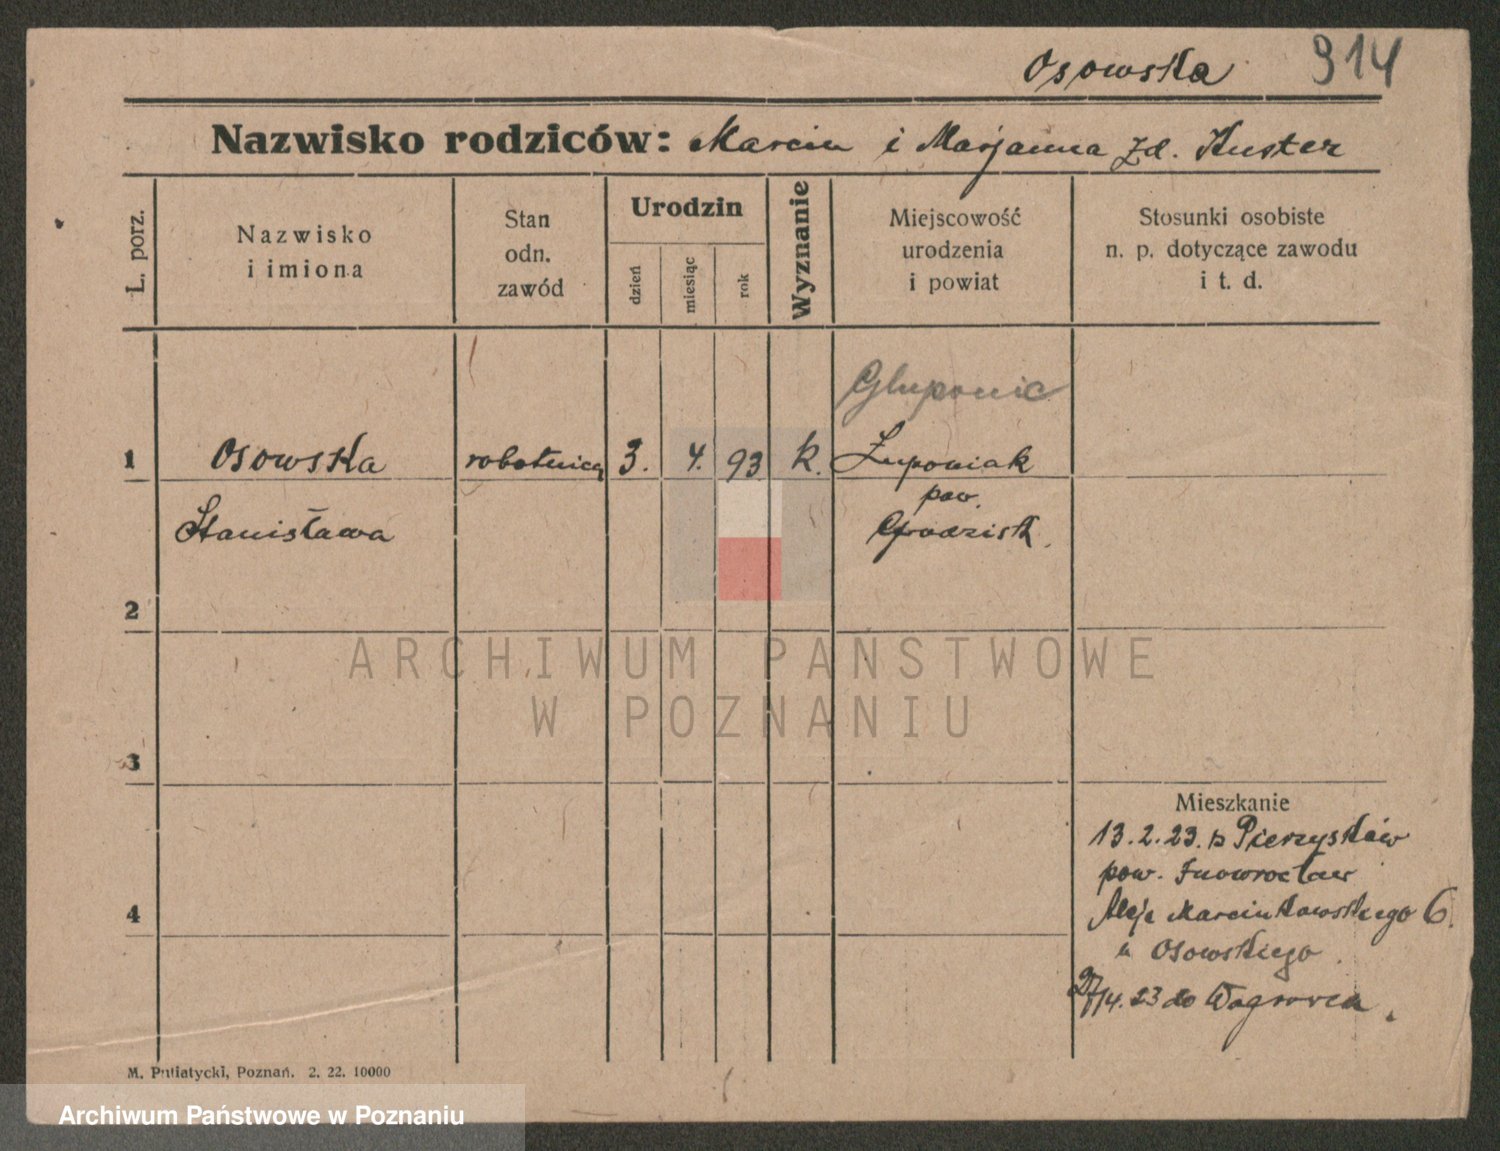 Osowska 914
Nazwisko rodziców: Marcin i Marjanna zd. Kuster
L. porz.
Nazwisko
i imiona
Stan
odn.
zawód
Urodzin
dzień
miesiąc
rok
Wyznanie
Miejscowość
urodzenia
i powiat
Stosunki osobiste
n. p. dotyczące zawodu
i t. d.
Głuponie
1 Osowska robotnica 3. 4. 93 k. Łuponiak
pow.
Stanisława Grodzisk.
2
ARCHIWUM PAŃSTWOWE
W POZNANIU
3
Mieszkanie
13.2.23. z Pierzysków
pow. Inowrocław
4
Aleje Marcinkowskiego 6.
u Osowskiego.
27/4.23 do Wągrowca.
M. Putiatycki, Poznań. 2. 22. 10000
Archiwum Państwowe w Poznaniu